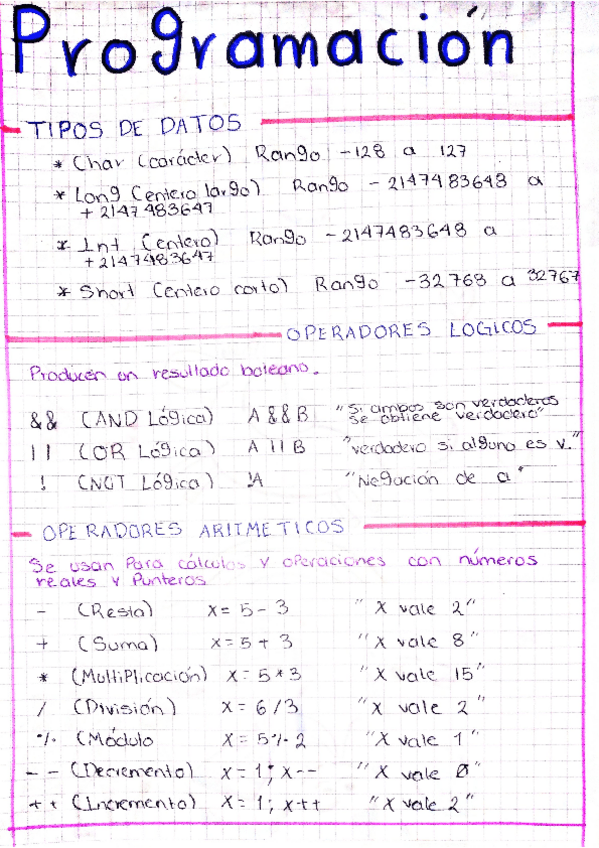 Programación
TIPOS DE DATOS
* Char (carácter) Rango -128 a 127
* Long (entero largo) Rango - 2147483648 a
+ 2147 483647
* Int (entero) Rango - 2147483648 a
+ 2147483647
* Short (entero corto) Rango -32 768 a 32767
OPERADORES LOGICOS
Producen un resultado boleano.
&& (AND Lógica) A && B "si ambos son verdaderos
se obtiene verdadero"
|| (OR Lógica) A || B "verdadero si alguno es v."
! (NOT Lógica) !A "Negación de a"
OPERADORES ARITMETICOS
Se usan Para cálculos y operaciones con números
reales y Punteros
- (Resta) X = 5 - 3 "X vale 2"
+ (Suma) X = 5 + 3 "X vale 8"
* (Multiplicación) X = 5 * 3 "X vale 15"
/ (División) X = 6 / 3 "X vale 2"
% (Módulo X = 5 % 2 "X vale 1"
-- (Decremento) X = 1; X-- "X vale 0"
++ (Incremento) X = 1; X++ "X vale 2"